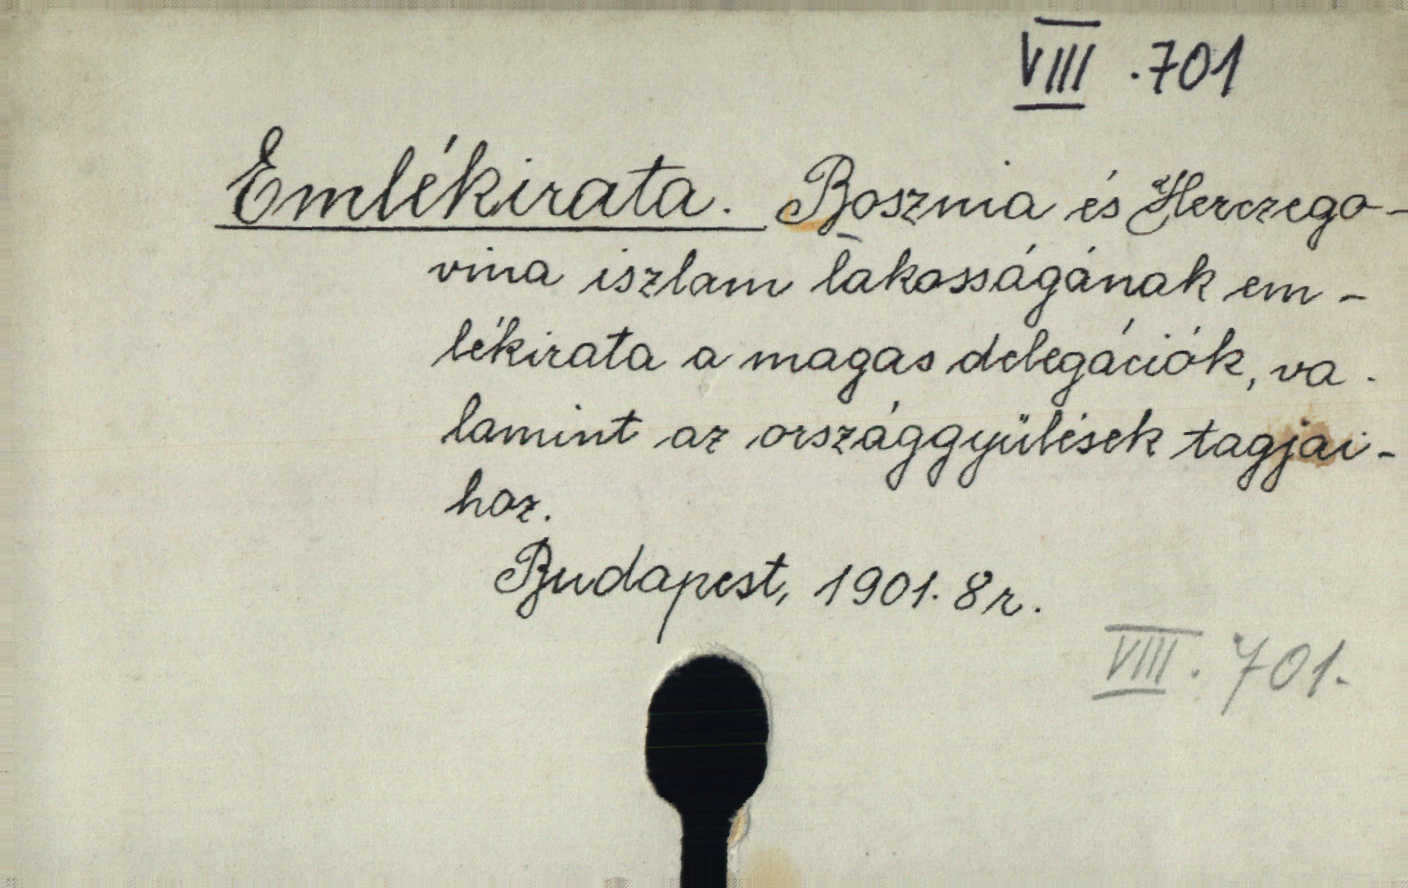 VIII .701
Emlékirata. Bosznia és Herczego-
vina iszlam lakosságának em-
lékirata a magas delegációk, va-
lamint az országgyülések tagjai-
hoz.
Budapest, 1901. 8r.
VIII. 701.